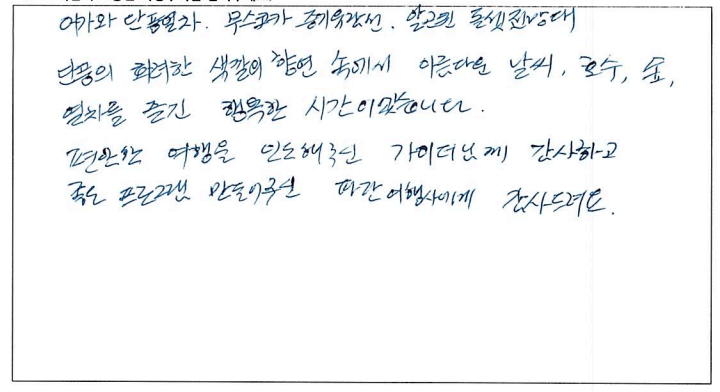 아가와 단풍열차. 무스코카 증기유람선. 알곤퀸 돌셋전망대
단풍의 화려한 색깔의 향연 속에서 아름다운 날씨, 호수, 숲,
열차를 즐긴 행복한 시간이었습니다.
편안한 여행을 인도해주신 가이더님께 감사하고
좋은 프로그램 만들어주신 파란여행사에게 감사드려요.